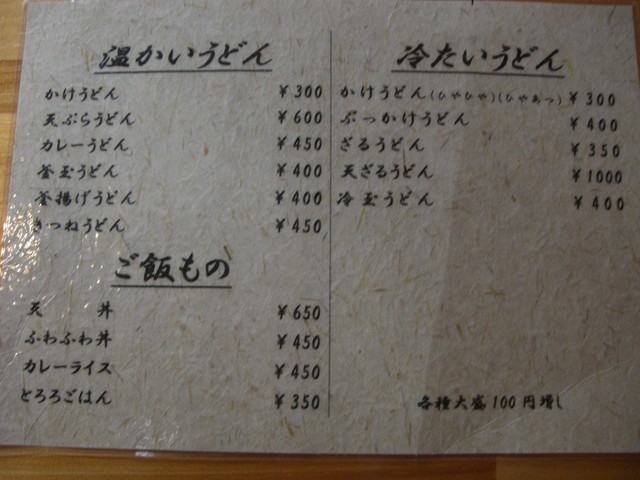 温かいうどん
かけうどん ¥300
天ぷらうどん ¥600
カレーうどん ¥450
釜玉うどん ¥400
釜揚げうどん ¥400
きつねうどん ¥450
ご飯もの
天 丼 ¥650
ふわふわ丼 ¥450
カレーライス ¥450
とろろごはん ¥350
冷たいうどん
かけうどん(ひやひや)(ひやあつ) ¥300
ぶっかけうどん ¥400
ざるうどん ¥350
天ざるうどん ¥1000
冷玉うどん ¥400
各種大盛100円増し